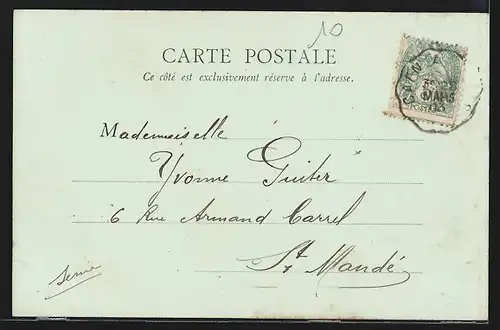 10
CARTE POSTALE
Ce côté est exclusivement réservé à l'adresse.
CAEN A
MARS
POSTES
Mademoiselle
Yvonne Guiter
6 Rue Armand Carrel
St Mandé
Seine